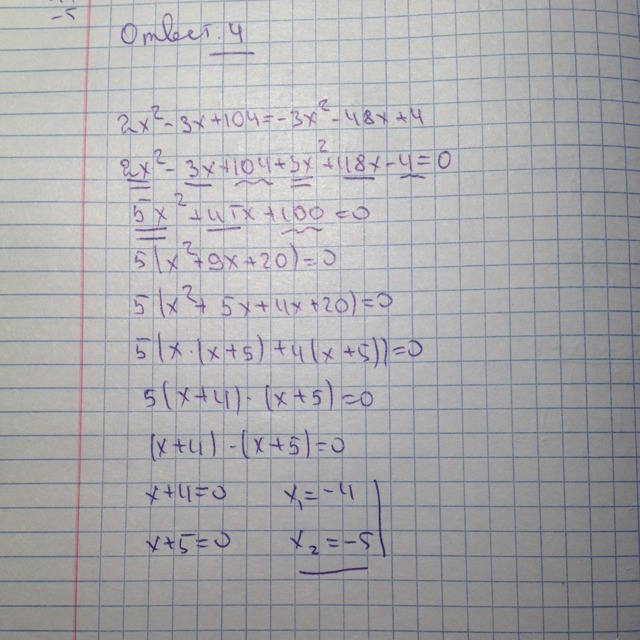 -5
Ответ. 4
2x² - 3x + 104 = -3x² - 48x + 4
2x² - 3x + 104 + 3x² + 48x - 4 = 0
5x² + 45x + 100 = 0
5(x² + 9x + 20) = 0
5(x² + 5x + 4x + 20) = 0
5(x · (x + 5) + 4(x + 5)) = 0
5(x + 4) · (x + 5) = 0
(x + 4) · (x + 5) = 0
x + 4 = 0 x₁ = -4
x + 5 = 0 x₂ = -5